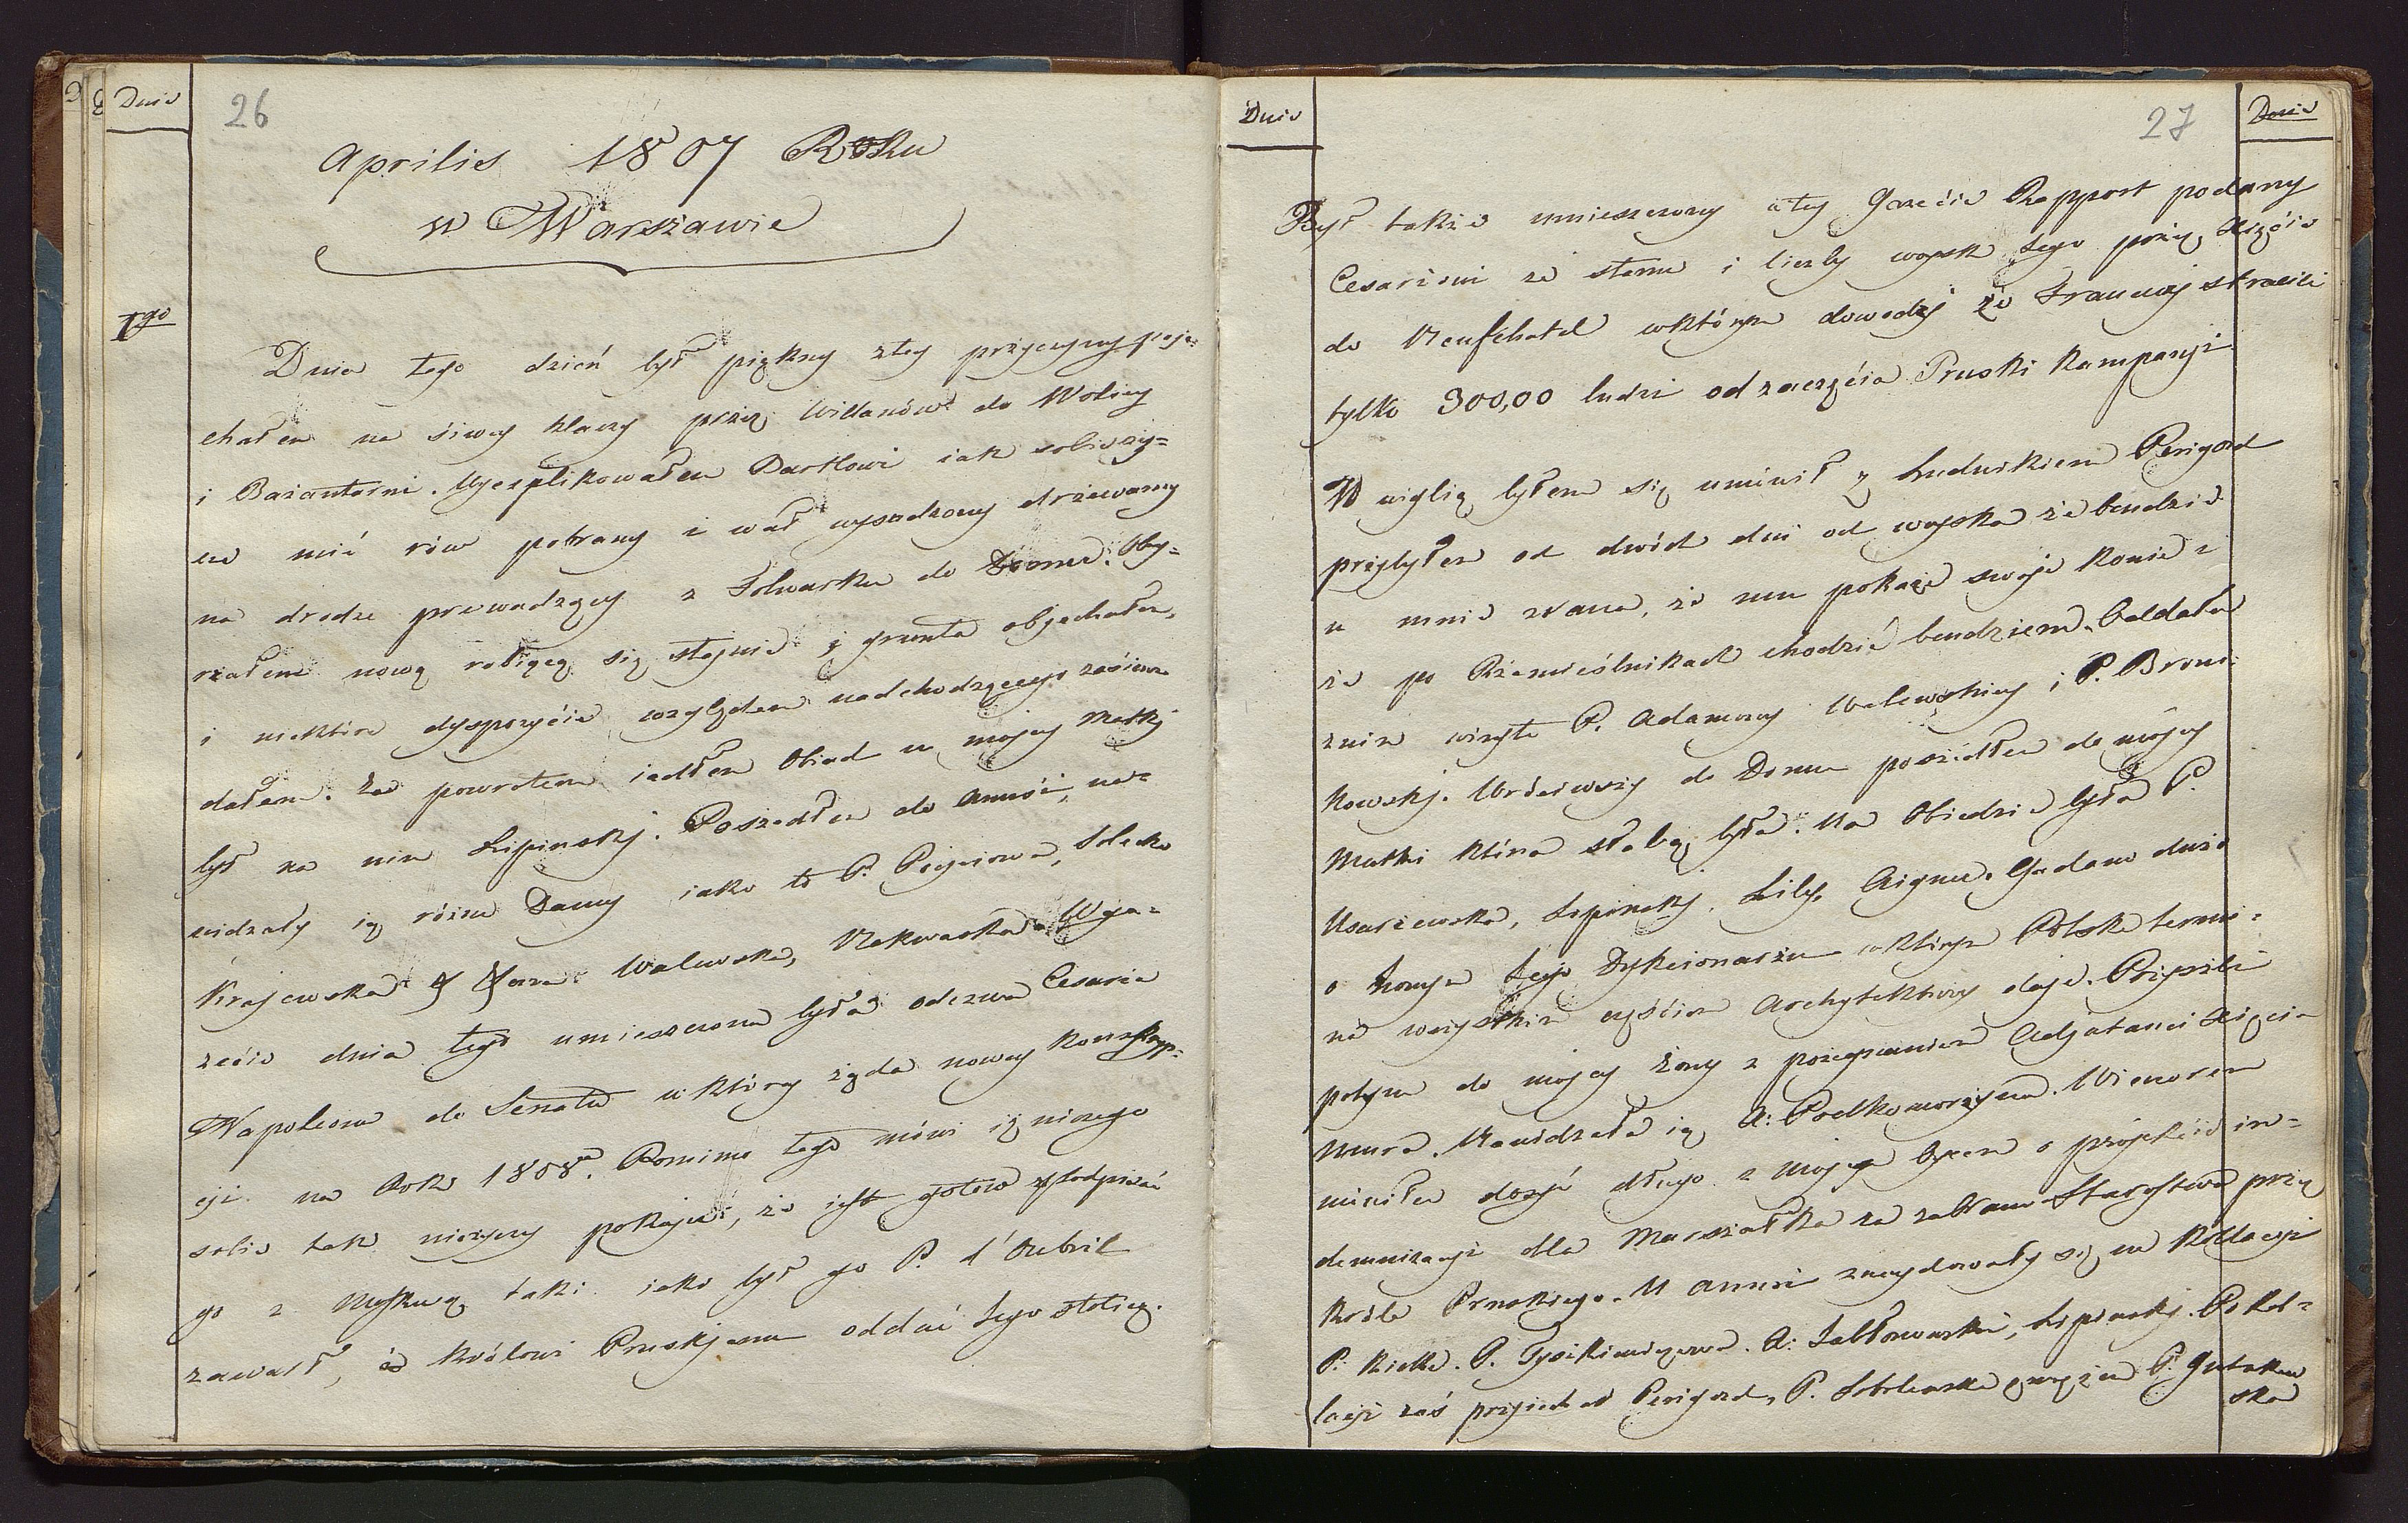 Dnia
26
Aprilis 1807 Roku
w Warszawie
1go
Dnia tego dzień był piękny ztey przyczyny poje=
chałem na siwey klaczy przez Willanów do Woliey
i Bażantarni. Wyexplikowałem Bartłowi iak sobie ży=
cze mić rów pobrany i wał wysadzony drzewamy
na drodze prowadzącey z Folwarku do Domu. Oby=
rzałem nową robiącą się stajnie y grunta objechałem,
i niektóre dyspozycie względem nadchodzącego zasiewu
dałem. Za powrotem iadłem Obiad u mojey Matki
był na nim Lipinskj. Poszedłem do Anusi, na=
widzały ią różne Damy iako to P. Pryciowa, Solecka
Krajewska, Walewska, Nakwaska. W ga=
zecie dnia tego umieszczona była odezwa Cesarza
Napoleona do Senatu w którey żąda nowey Konskryp=
cji na Rok 1808. Pomimo tego mówi iż niczego
sobie tak nieżyczy pokoju, że iest gotów podpisać
go z Moskwą taki iako był go P. d'Oubril
zawarł, i Królowi Pruskjemu oddać Jego stolicę.
Dnia
27
Dnia
Był także umieszczony w tey Gazecie Rapport podany
Cesarzowi ze stanu i liczby woysk Jego przez Xięcia
de Neufchatel w którym dowodzj że Francuzj stracili
tylko 300,00 ludzi od zaczęcia Pruski Kampanji.
W wiglią byłem się umówił z Ludwikiem Perigord
przybyłem od dwóch dni od woyska że bendzie
u mnie zrana, że mu pokażę swoje Konie i
że po Rzemieślnikach chodzić bendziem. Oddałem
z nim wizyte P. Adamowy Walewskiey i P. Broni=
kowskj. Wróciwszy do Domu poszedłem do mojey
Matki która słabą była. Na Obiedzie była P.
Usarzewska, Lipinskj, Lily, Aigner. Gadano dużo
o nowym Jego Dykcionarzu w którym Polskie termi=
na wszystkim częściom Archytektury daje. Przyszli
potym do mojey Żony z pożegnaniem Adjutanci Xięcia
Mura. Nawidzała ią X: Podkomorzyna. Wieczorem
mówiłem dosyć długo z mojem Oycem o projekcie in=
demnizacji dla Marszałka za zabrane Starostwa przez
Króla Pruskiego. U Anusi znaydowały się na Kollacji
P. Kicka. P. Tyszkiewiczowa. X: Jabłonowski, Lipinskj. Po Kol=
lacji zaś przyjechał Perigord, P. Sobolewska z mężem P. Gutakow
ska